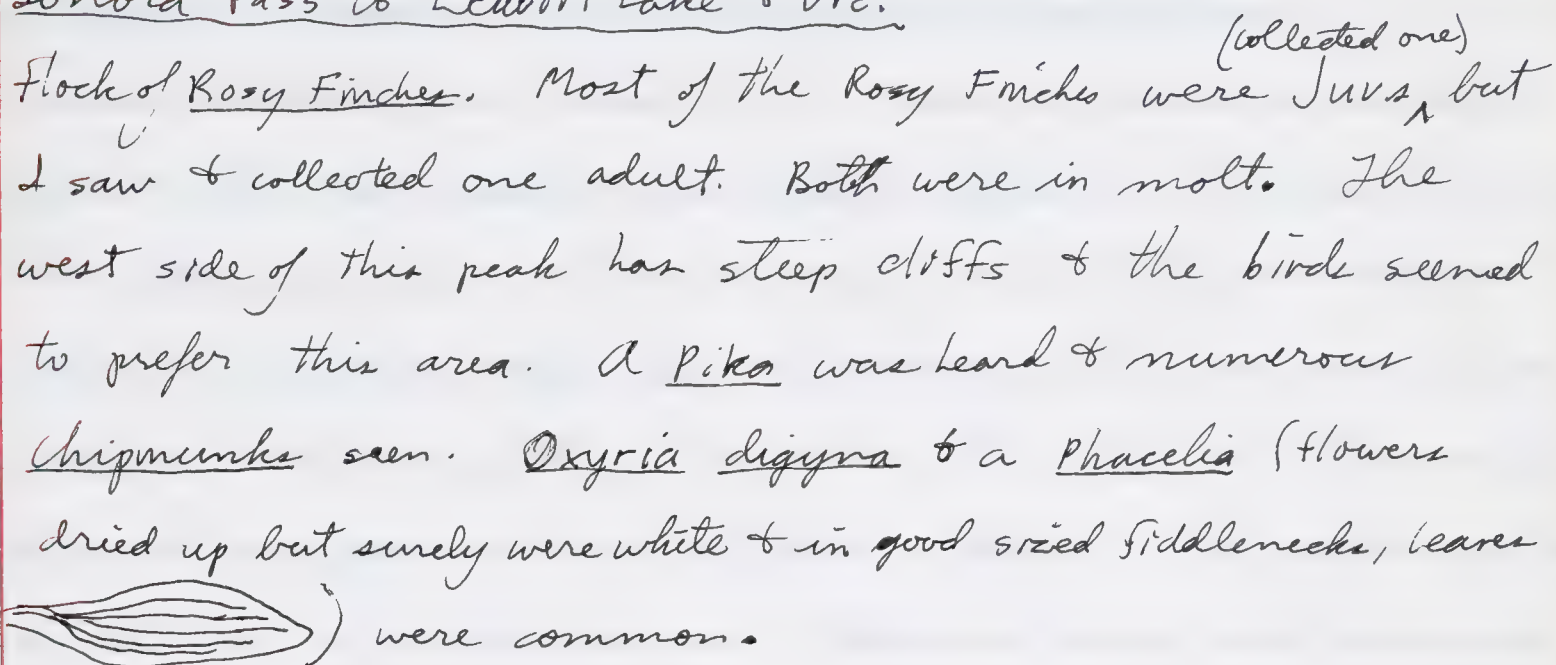 Sonora Pass to Leavitt Lake & Vic.
(collected one)
flock of Rosy Finches. Most of the Rosy Finches were Juvs ‸ but
I saw & collected one adult. Both were in molt. The
west side of this peak has steep cliffs & the birds seemed
to prefer this area. A Pika was heard & numerous
Chipmunks seen. Oxyria digyna & a Phacelia (flowers
dried up but surely were white & in good sized fiddlenecks, leaves
) were common.